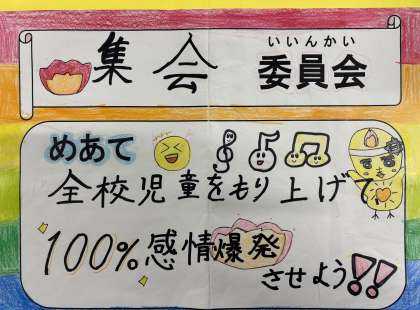 いいんかい
集会 委員会
めあて
全校児童をもり上げ
100%感情爆発
させよう!!